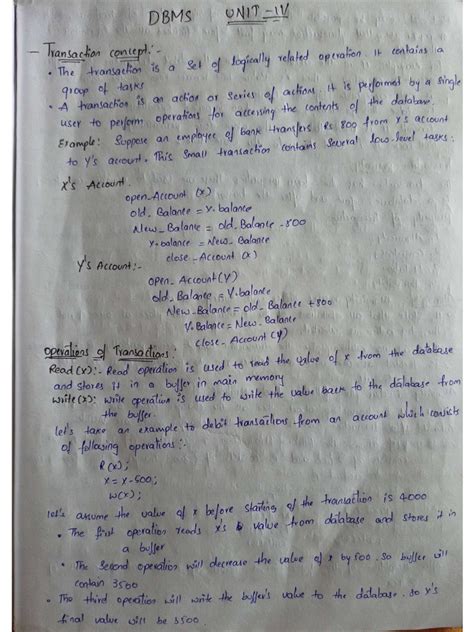 DBMS UNIT-IV
- Transaction concept:-
• The transaction is a set of logically related operation. It contains a
group of tasks
• A transaction is an action or series of actions. It is performed by a single
user to perform operations for accessing the contents of the database.
Example: Suppose an employee of bank transfers Rs 800 from x's account
to Y's account. This small transaction contains several low-level tasks:
X's Account
open_Account (x)
old_Balance = x.balance
New_Balance = old_Balance -800
x.balance = New_Balance
close_Account (x)
Y's Account:-
open_Account(Y)
old_Balance = Y.balance
New_Balance = old_Balance +800
Y.Balance = New_Balance
close_Account (Y)
Operations of Transactions:
Read (x):- Read operation is used to read the value of x from the database
and stores it in a buffer in main memory
Write(x): Write operation is used to write the value back to the database from
the buffer.
let's take an example to debit transactions from an account which consists
of following operations:-
R(x);
x = x-500;
W(x);
let's assume the value of x before starting of the transaction is 4000
• The first operation reads x's value from database and stores it in
a buffer
• The second operation will decrease the value of x by 500. so buffer will
contain 3500
• The third operation will write the buffer's value to the database. so x's
final value will be 3500